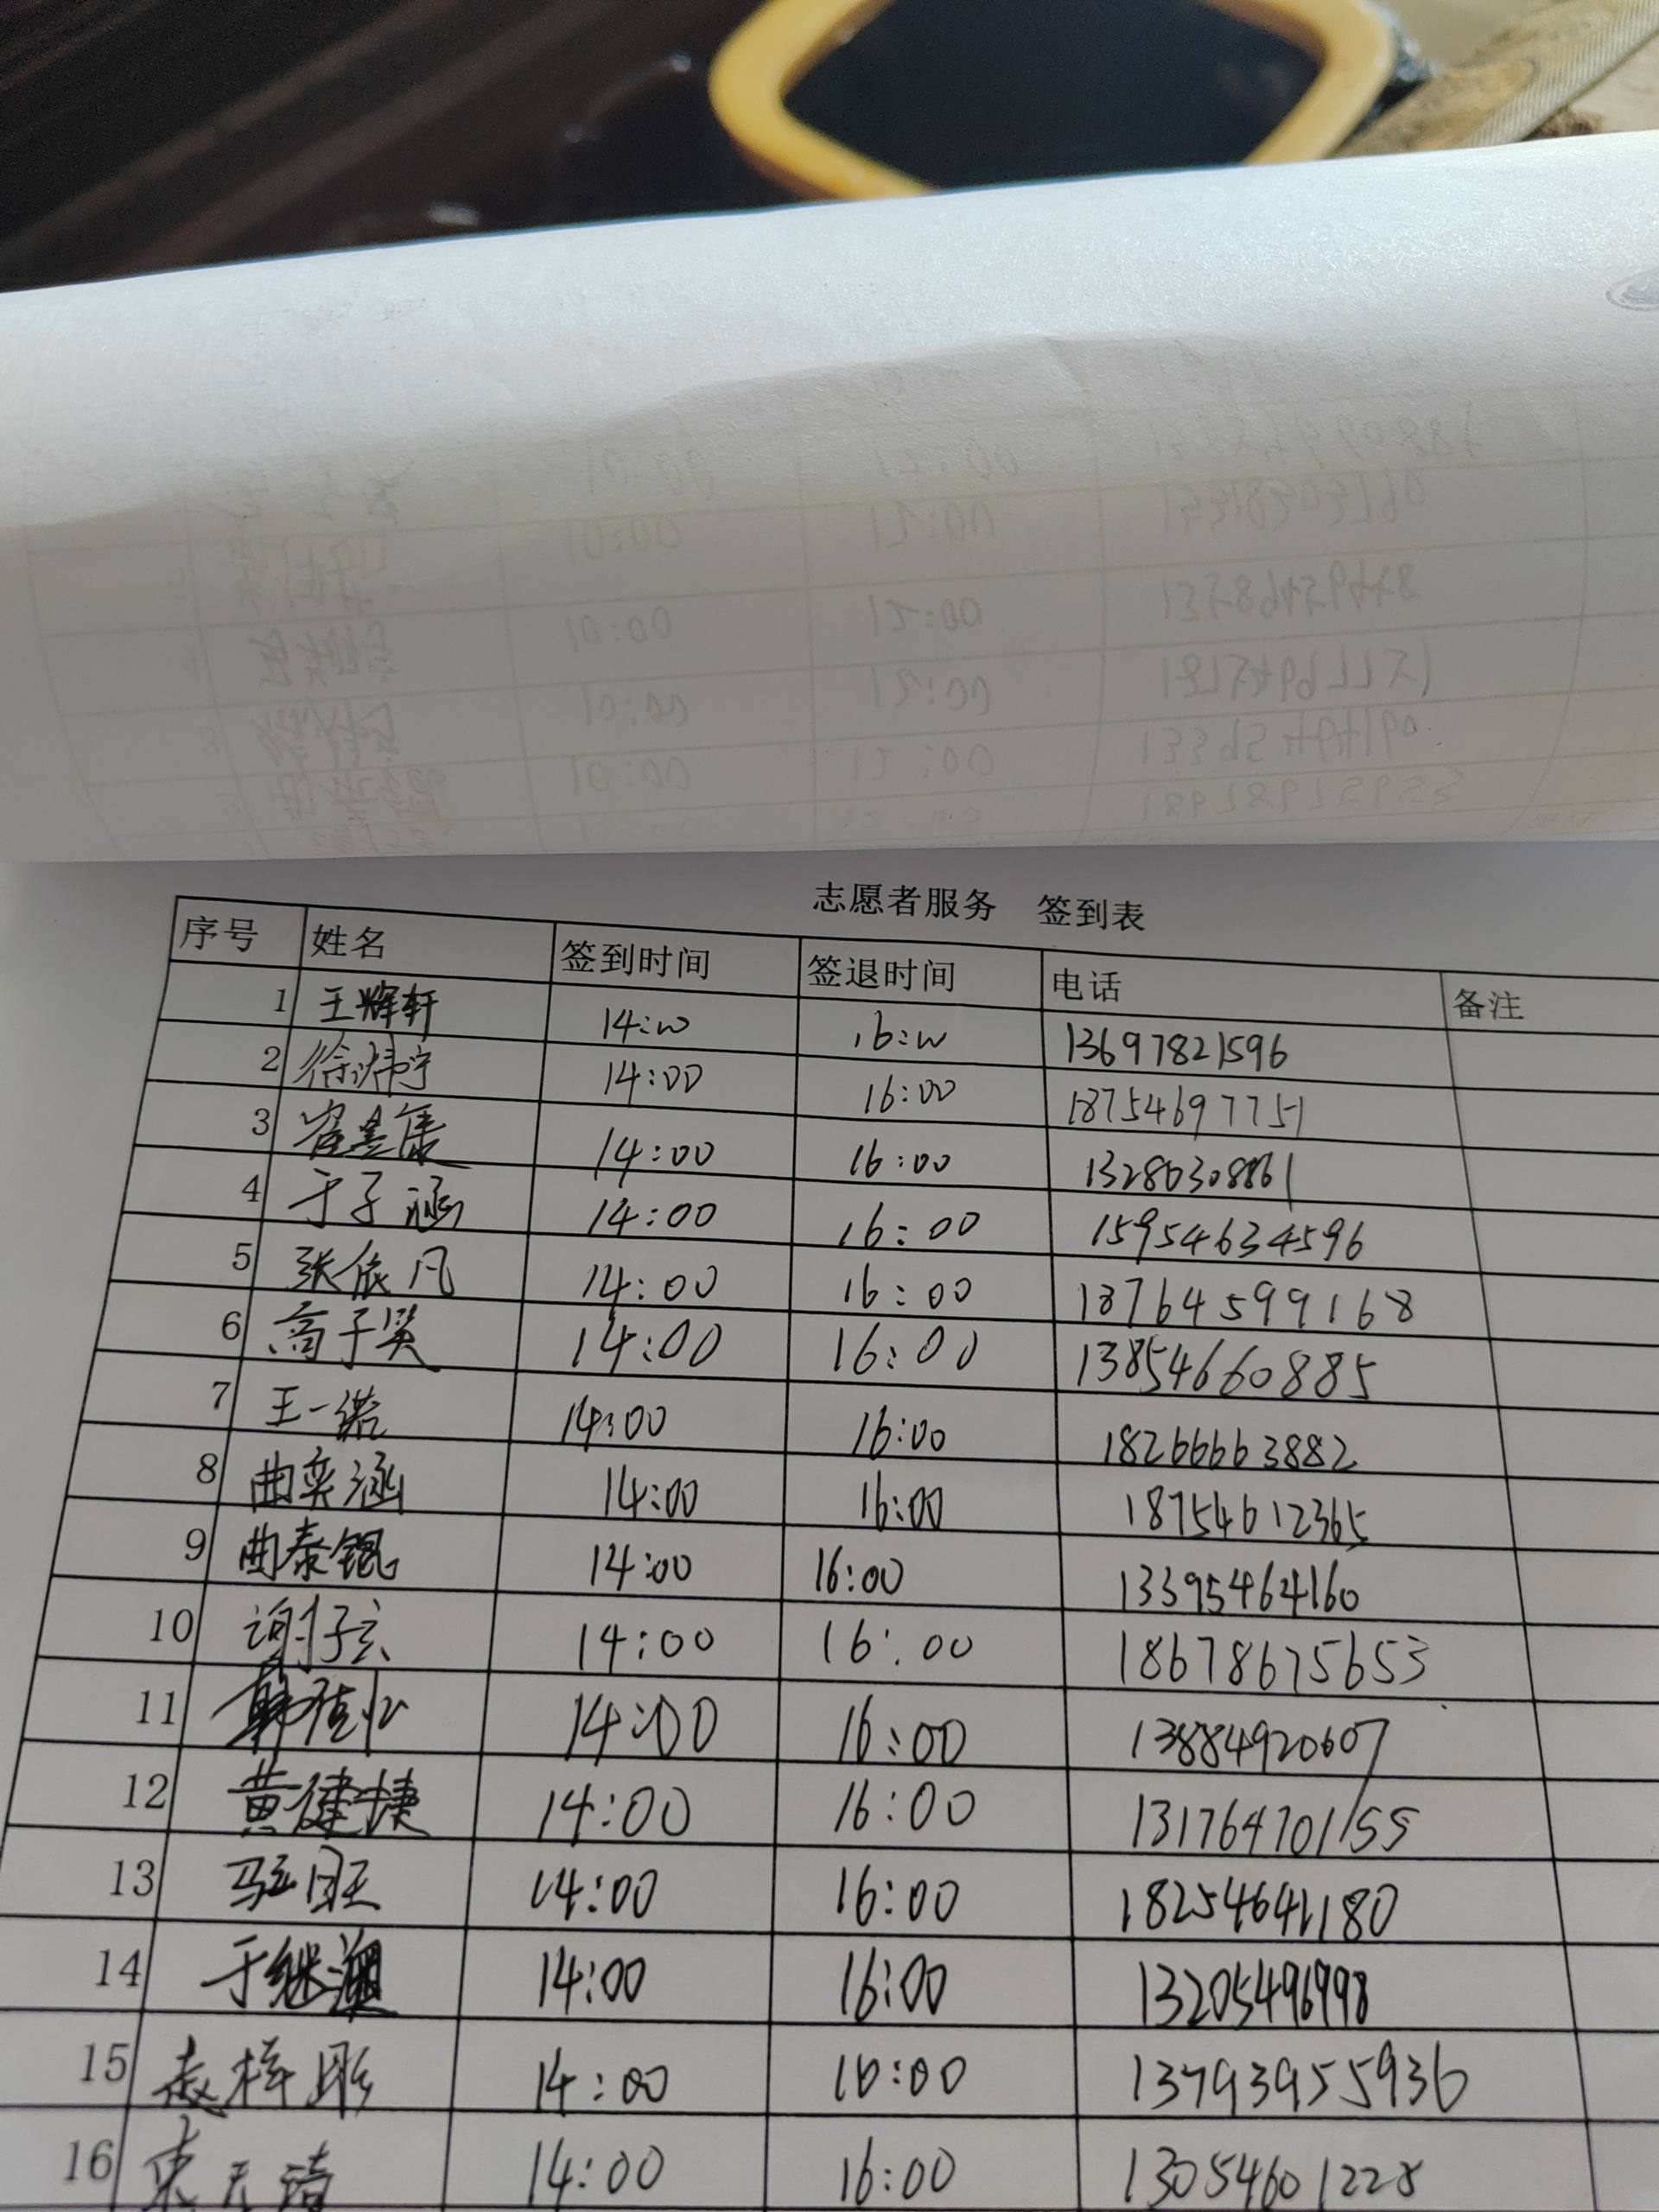 志愿者服务 签到表
序号 姓名 签到时间 签退时间 电话 备注
1 王辉轩 14:00 16:00 13697821596
2 徐炜宁 14:00 16:00 18754697751
3 14:00 16:00
4 于子涵 14:00 16:00 15954634596
5 张依凡 14:00 16:00 18764599168
6 高子昊 14:00 16:00 13854660885
7 王一诺 14:00 16:00 18266663882
8 曲奕涵 14:00 16:00 18754612365
9 曲泰锟 14:00 16:00 13395464160
10 谢仔玄 14:00 16:00 18678675653
11 14:00 16:00 13884920607
12 黄建捷 14:00 16:00 13176470155
13 14:00 16:00 18254641180
14 于继澳 14:00 16:00 13205496998
15 14:00 16:00 13793955936
16 14:00 16:00 13054601228